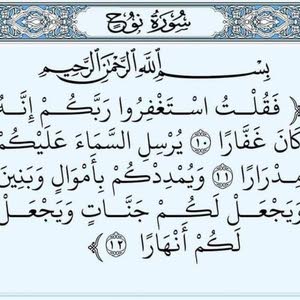 سُورَةُ نُوحٍ
بِسْمِ اللَّهِ الرَّحْمَٰنِ الرَّحِيمِ
﴿ فَقُلْتُ اسْتَغْفِرُوا رَبَّكُمْ إِنَّهُ
كَانَ غَفَّارًا ١٠ يُرْسِلِ السَّمَاءَ عَلَيْكُم
مِدْرَارًا ١١ وَيُمْدِدْكُم بِأَمْوَالٍ وَبَنِينَ
وَيَجْعَل لَكُمْ جَنَّاتٍ وَيَجْعَل
لَكُمْ أَنْهَارًا ١٢ ﴾